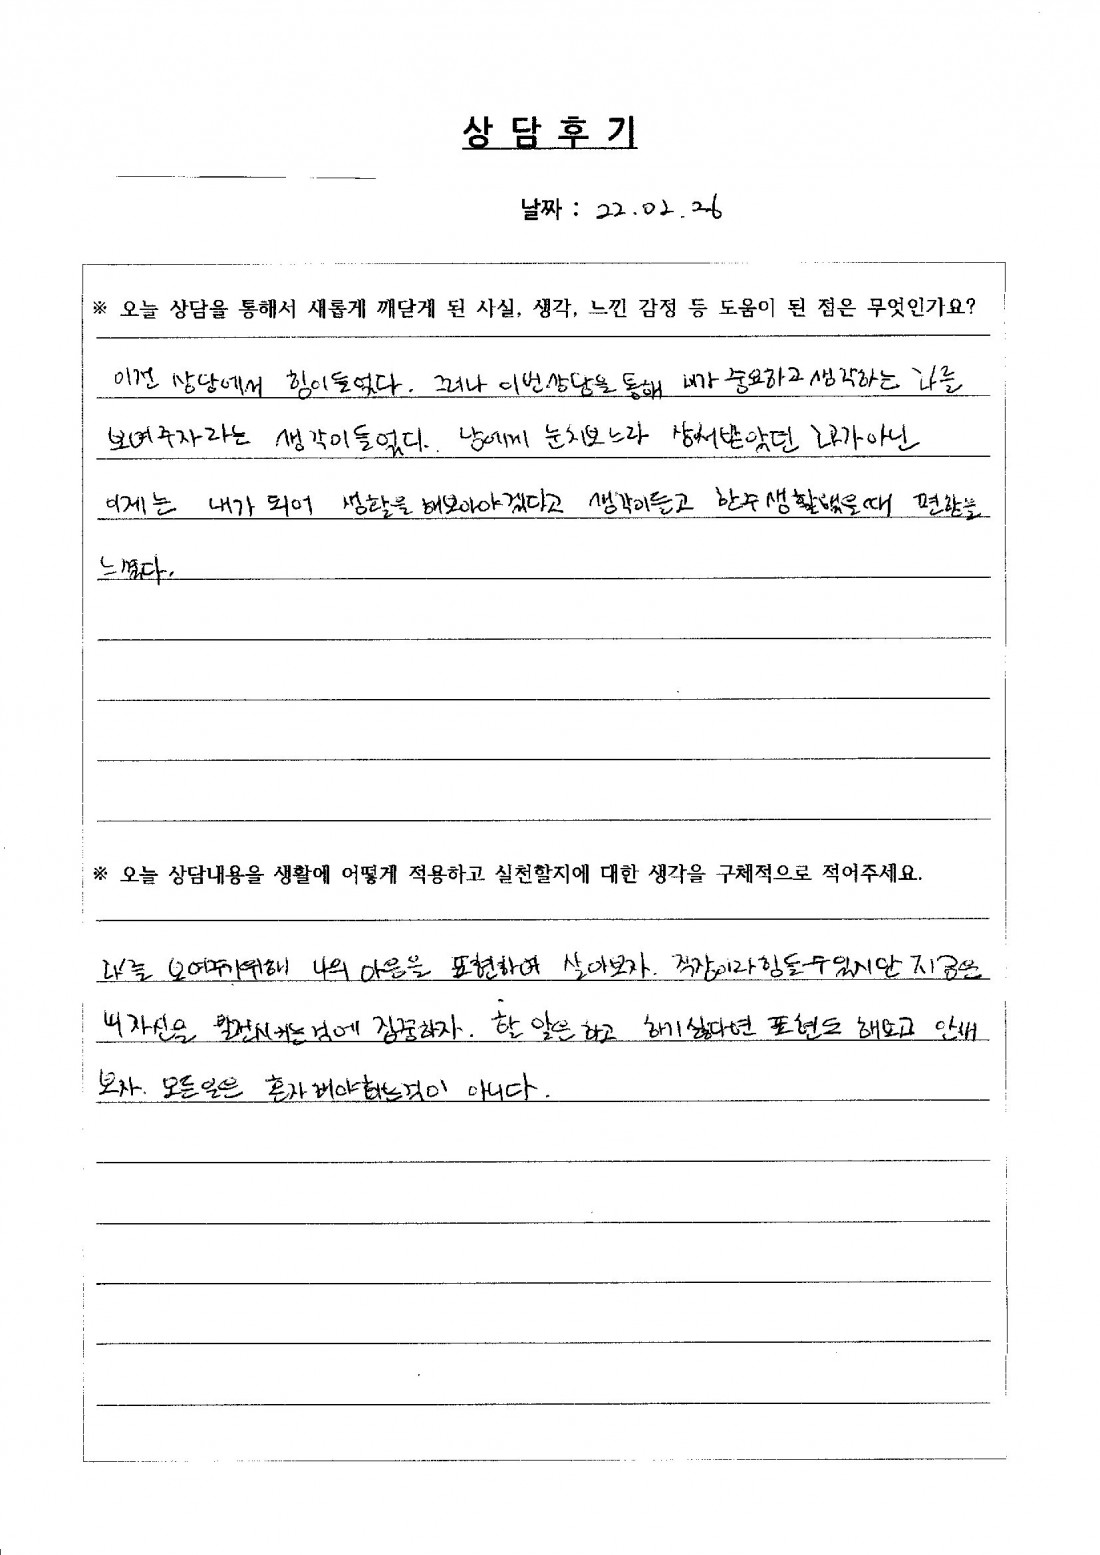 상담후기
날짜 : 22.02.26
※ 오늘 상담을 통해서 새롭게 깨닫게 된 사실, 생각, 느낀 감정 등 도움이 된 점은 무엇인가요?
이전 상담에서 힘이들었다. 그러나 이번상담을 통해 내가 중요하고 생각하는 나를
보여주자라는 생각이들었다. 남에게 눈치보느라 상처받았던 나가아닌
이제는 내가 되어 생활을 해보아야겠다고 생각이들고 한주생활했을때 편함을
느꼈다.
※ 오늘 상담내용을 생활에 어떻게 적용하고 실천할지에 대한 생각을 구체적으로 적어주세요.
나를 보여주기위해 나의 마음을 표현하며 살아보자. 직장이라힘들수있지만 지금은
내 자신을 발전시키는것에 집중하자. 할 일은하고 하기싫다면 표현도 해보고 안해
보자. 모든일은 혼자해야하는것이 아니다.